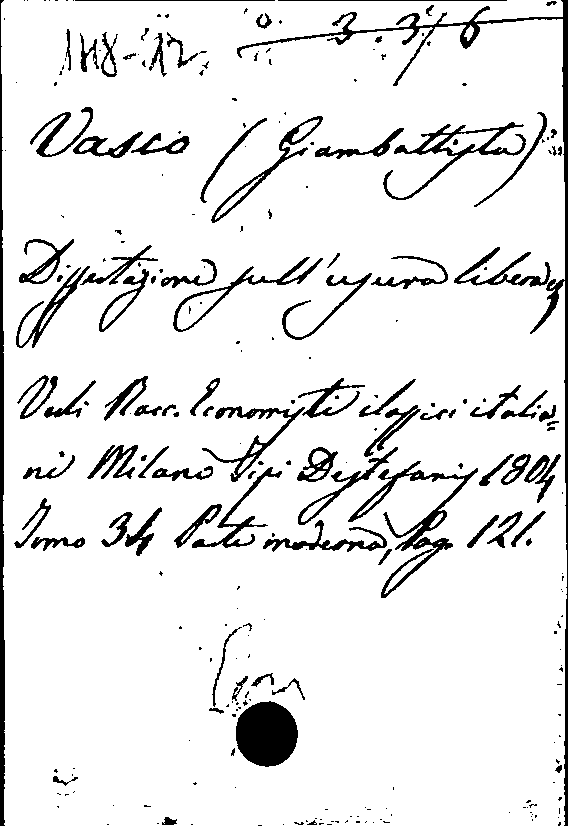 148-12. 3. 3/6
Vasco (Giambattista)
Dissertazione sull'usura libera
Vedi Racc. Economisti classici italia=
ni Milano Tipi Destefanis 1804
Tomo 34 Parte moderna, Pag. 121.
Econ